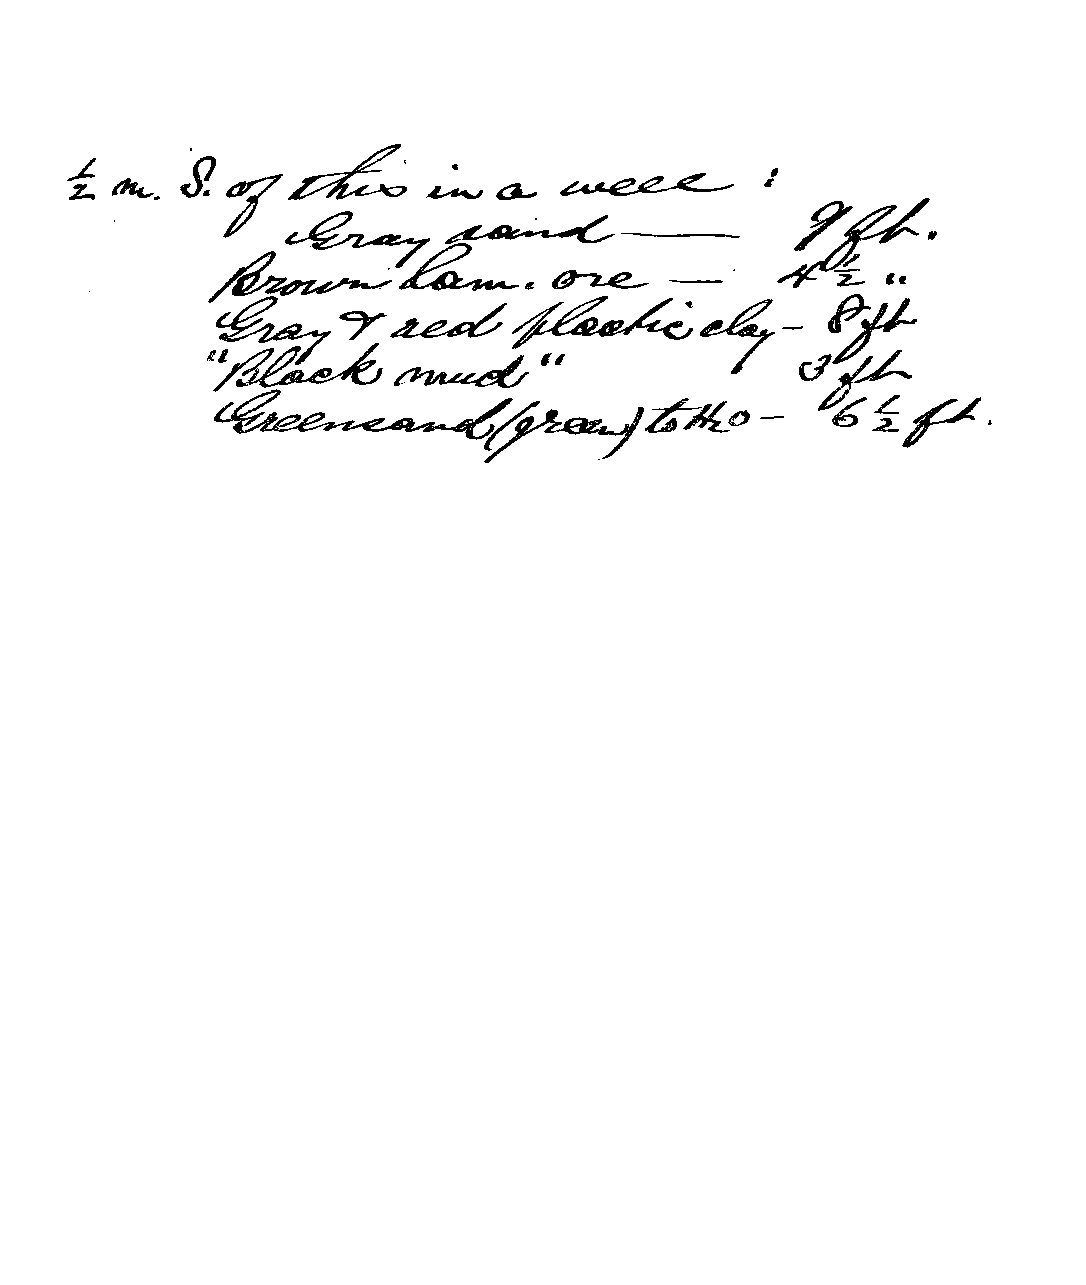 ½ m. S. of this in a well :
Gray sand — 9 ft.
Brown lam. ore — 4 ½ "
Gray & red plastic clay - 8 ft
"Black mud" 3 ft
Greensand (green) to H2O - 6 ½ ft.